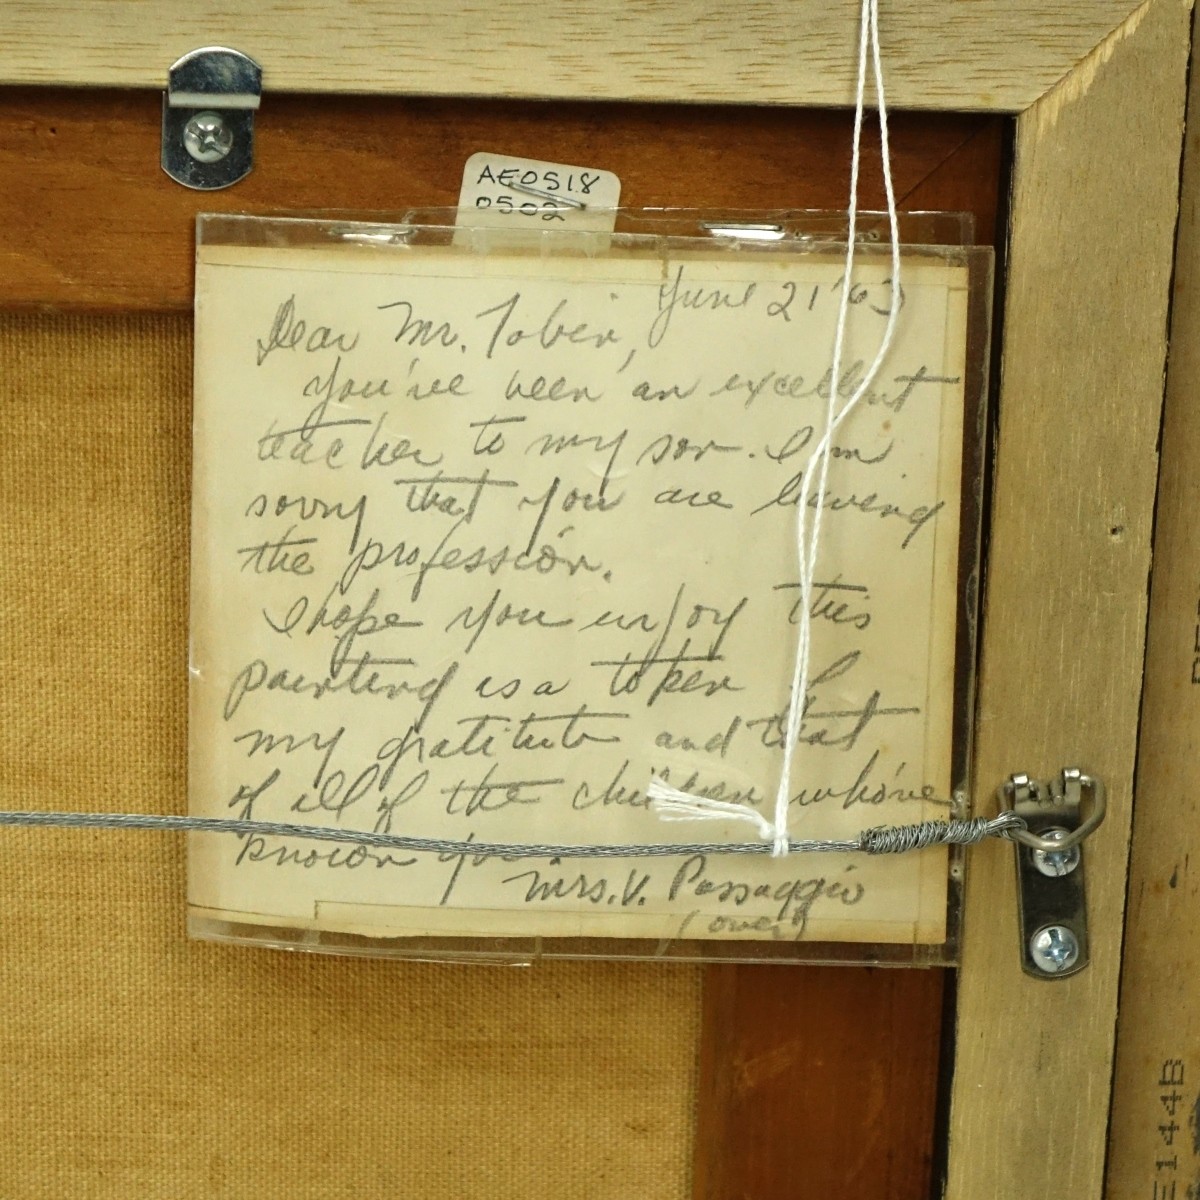 AE0518
0502
June 21 '63
Dear Mr. Tobin,
You've been an excellent
teacher to my son. I'm
sorry that you are leaving
the profession.
I hope you enjoy this
painting is a token of
my gratitute and that
of all of the children who've
known you.
Mrs. V. Passaggio
(over)
E144B